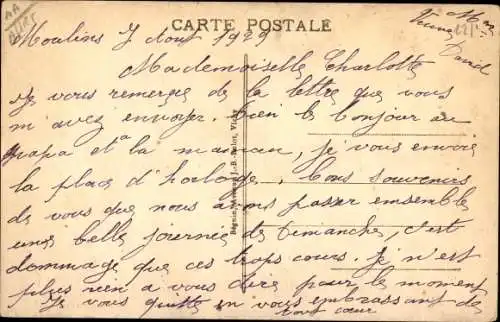 CARTE POSTALE
Moulins 7 aout 1929
Mademoiselle Charlotte
Je vous remerçie de la lettre que vous
m'avez envoyer. bien le bonjour au
papa et a la maman, je vous envoie
la place d'horloge. bons souvenirs
de vous que nous avons passer ensemble
une belle journée de Dimanche, c'est
dommage que ces trops cours. Je n'est
plus rien a vous dire pour le moment
Je vous quitte en vous embrassant de
tout cœur
Mme
Veuve
David
Vichy